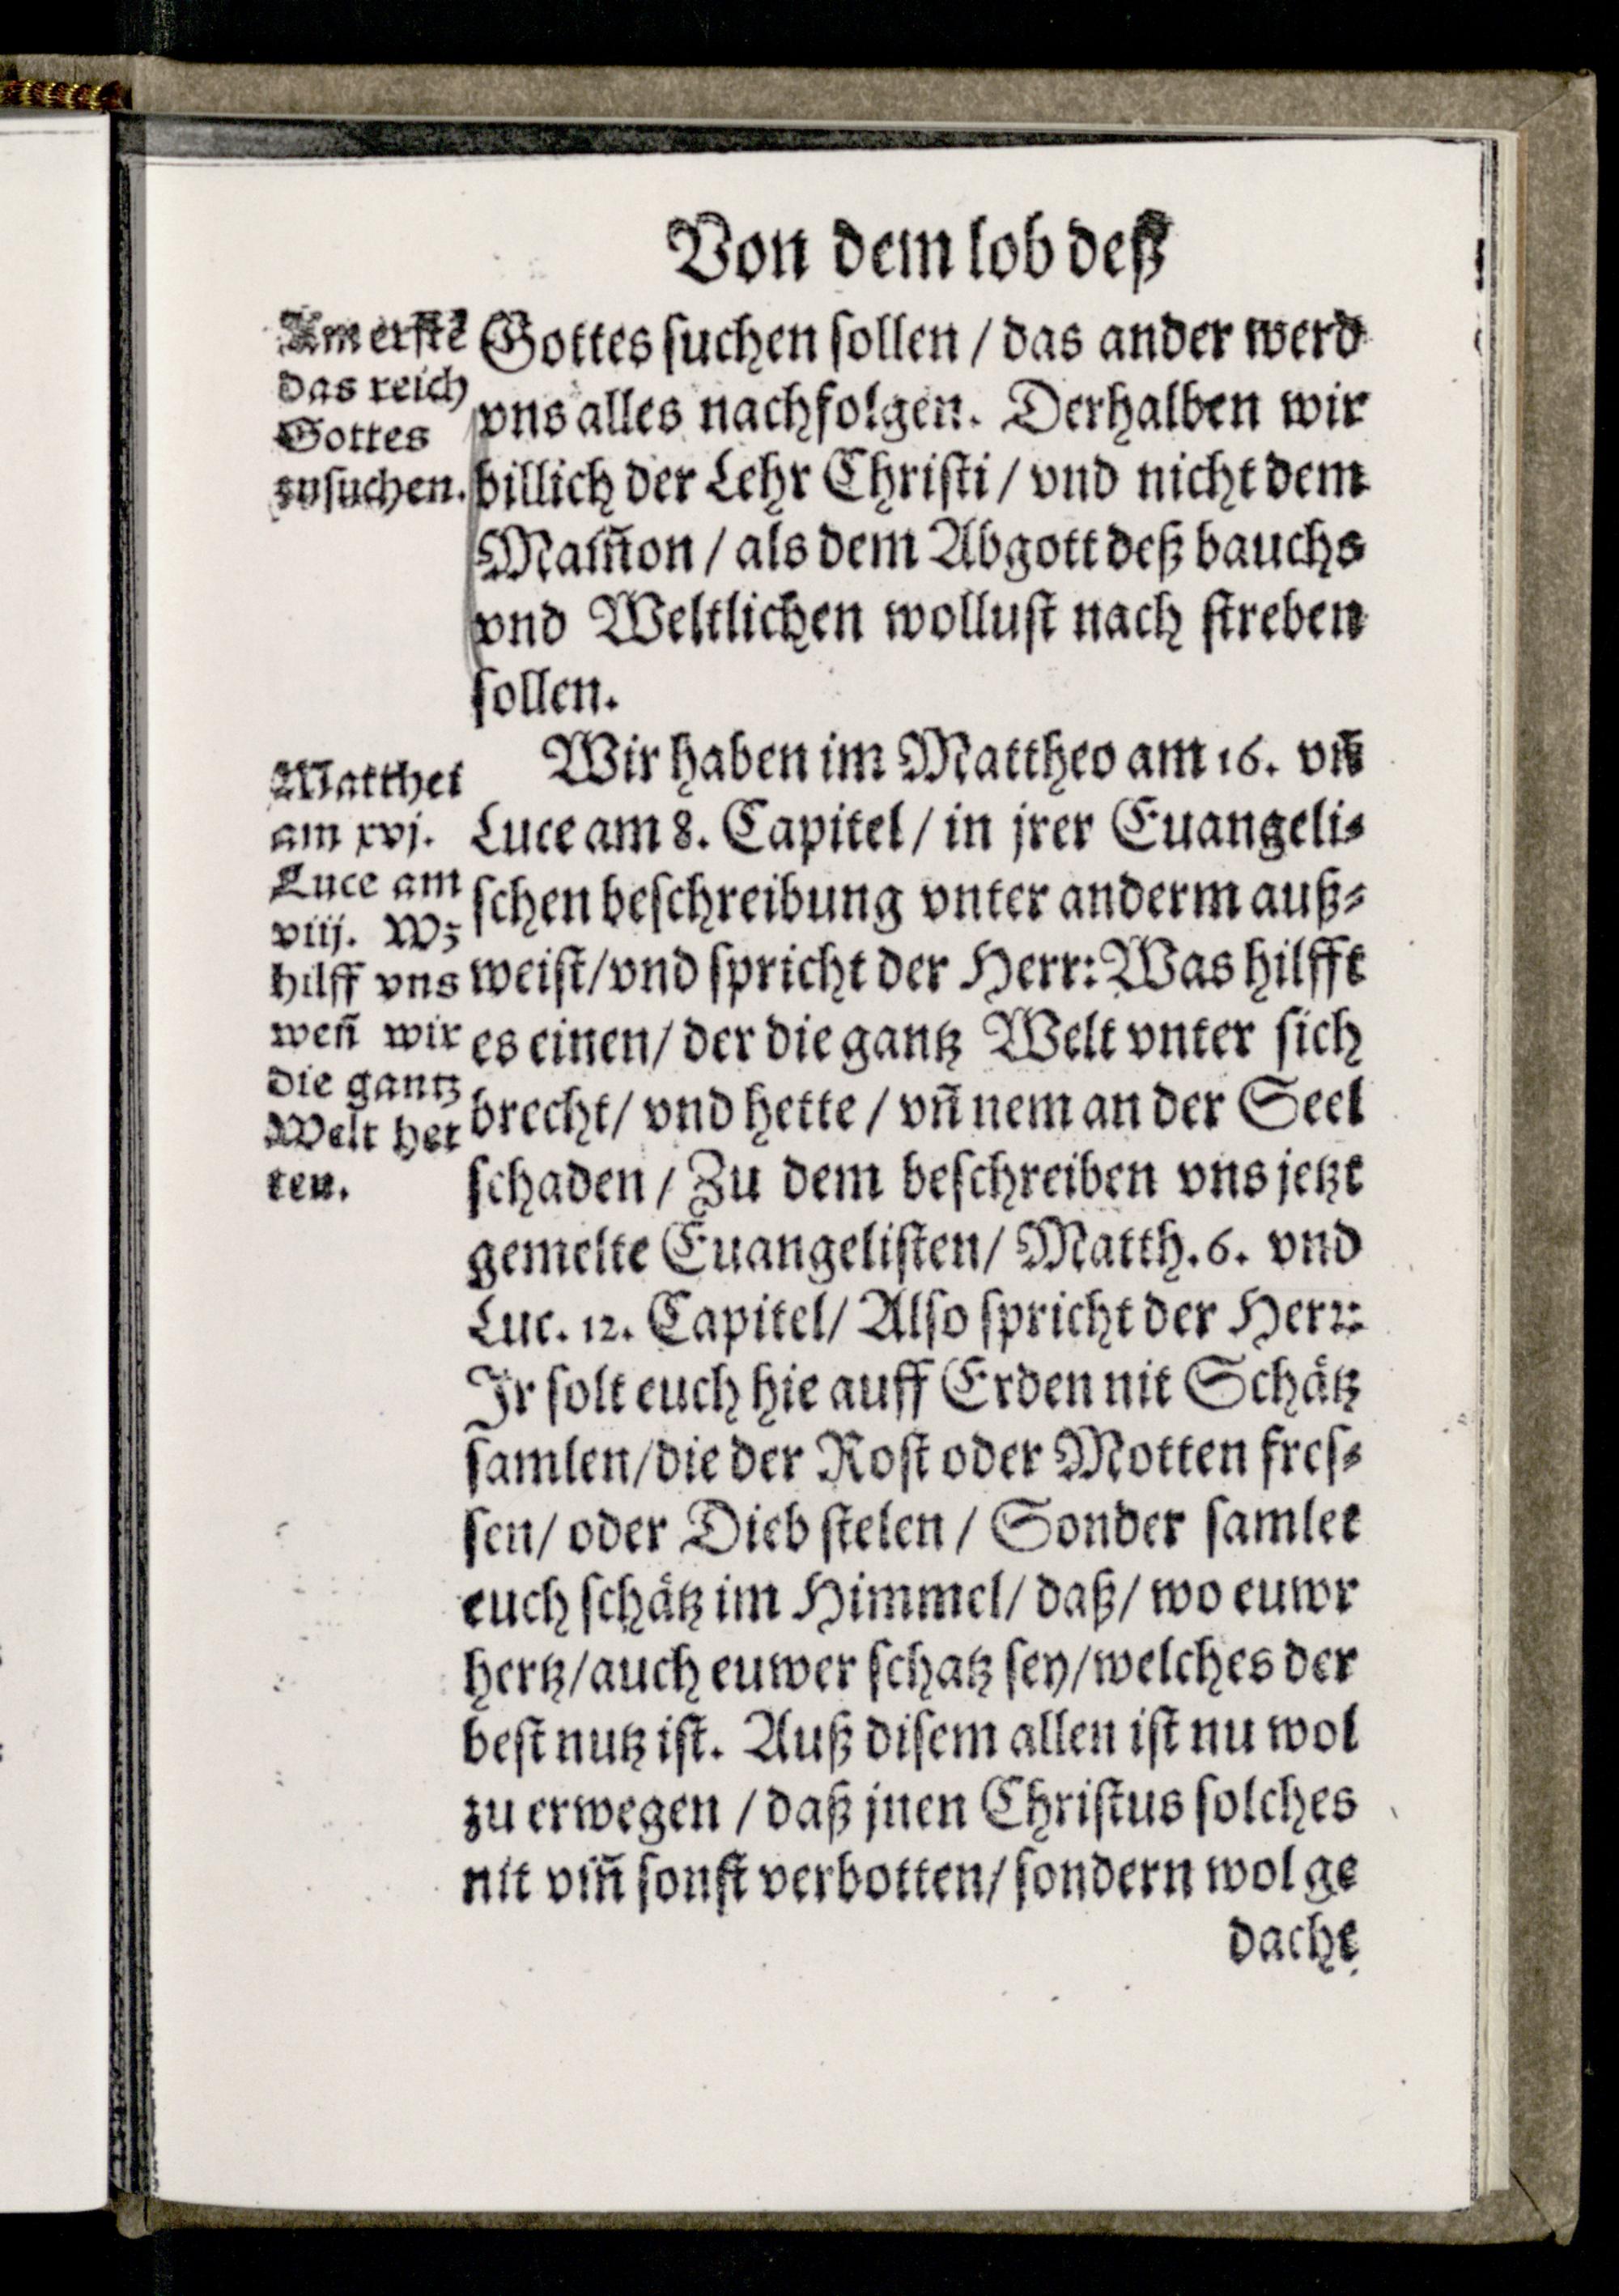 Von dem lob deß
Am erstē
das reich
Gottes
zusuchen.
Gottes suchen sollen / das ander werd
vns alles nachfolgen. Derhalben wir
billich der Lehr Christi / vnd nicht dem
Mam̃on / als dem Abgott deß bauchs
vnd Weltlichen wollust nach streben
sollen.
Matthei
am xvj.
Luce am
viij. Wz
hilff vns
weñ wir
die gantz
Welt het
ten.
Wir haben im Mattheo am 16. vñ
Luce am 8. Capitel / in jrer Euangeli-
schen beschreibung vnter anderm auß-
weist / vnd spricht der Herr: Was hilfft
es einen / der die gantz Welt vnter sich
brecht / vnd hette / vñ nem an der Seel
schaden / Zu dem beschreiben vns jetzt
gemelte Euangelisten / Matth. 6. vnd
Luc. 12. Capitel / Also spricht der Herr:
Jr solt euch hie auff Erden nit Schätz
samlen / die der Rost oder Motten fres-
sen / oder Dieb stelen / Sonder samlet
euch schätz im Himmel / daß / wo euwr
hertz / auch euwer schatz sey / welches der
best nutz ist. Auß disem allen ist nu wol
zu erwegen / daß jnen Christus solches
nit vm̃ sonst verbotten / sondern wol ge
dacht